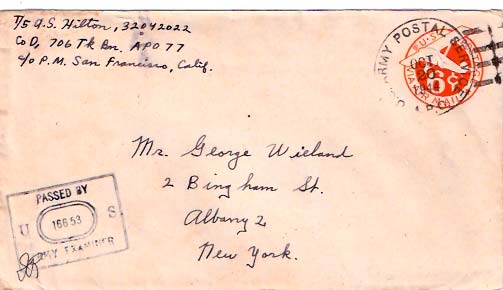 T/5 A.S. Hilton, 32042022
Co D, 706 Tk Bn. APO 77
c/o P.M. San Francisco, Calif.
ARMY POSTAL
OCT
20
A.P.O.
U.S.
VIA AIR MAIL
6c
Mr. George Wieland
2 Bingham St.
Albany 2
New York.
PASSED BY
U 16653 S
ARMY EXAMINER